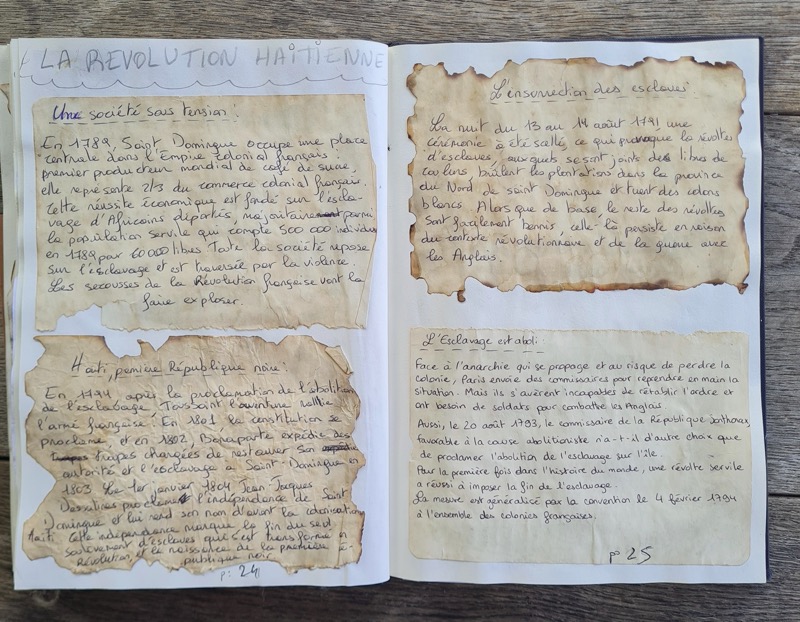 LA REVOLUTION HAÏTIENNE
Une société sous tension :
En 1789, Saint Domingue occupe une place
centrale dans l'Empire colonial français :
premier producteur mondial de café de sucre,
elle représente 2/3 du commerce colonial français.
Cette réussite économique est fondé sur l'escla-
vage d'Africains déportés, majoritaire parmi
la population servile qui compte 500 000 individus
en 1789 pour 60 000 libres. Toute la société repose
sur l'esclavage et est traversée par la violence.
Les secousses de la Révolution française vont la
faire exploser.
Haïti, première République noire :
En 1794 après la proclamation de l'abolition
de l'esclavage, Toussaint Louverture rallie
l'armé française. En 1801 la constitution se
proclame, et en 1802, Bonaparte expédie des
troupes chargées de restaurer son
autorité et l'esclavage à Saint-Domingue en
1803 Le 1er janvier 1804 Jean Jacques
Dessalines proclament l'indépendance de Saint
Domingue et lui rend son nom d'avant la colonisation
Haïti. Cette indépendance marque la fin du seul
soulèvement d'esclaves qui s'est transformé en
Révolution, et la naissance de la première ré-
publique noire
p: 24
L'insurrection des esclaves
La nuit du 13 au 14 août 1791 une
cérémonie a été scellé, ce qui provoque la révoltes
d'esclaves, auxquels se sont joints des libres de
couleurs, brûlent les plantations dans la province
du Nord de saint Domingue et tuent des colons
blancs. Alors que de base, le reste des révoltes
sont facilement bannis, celle-là persiste en raison
du contexte révolutionnaire et de la guerre avec
les Anglais.
L'Esclavage est aboli :
Face à l'anarchie qui se propage et au risque de perdre la
colonie, Paris envoie des commissaires pour reprendre en main la
situation. Mais ils s'avèrent incapables de rétablir l'ordre et
ont besoin de soldats pour combattre les Anglais
Aussi, le 20 août 1793, le commissaire de la République Sonthonax,
favorable à la cause abolitionniste n'a-t-il d'autre choix que
de proclamer l'abolition de l'esclavage sur l'île.
Pour la première fois dans l'histoire du monde, une révolte servile
a réussi à imposer la fin de l'esclavage.
La mesure est généralisé par la convention le 4 février 1794
à l'ensemble des colonies françaises.
p 25